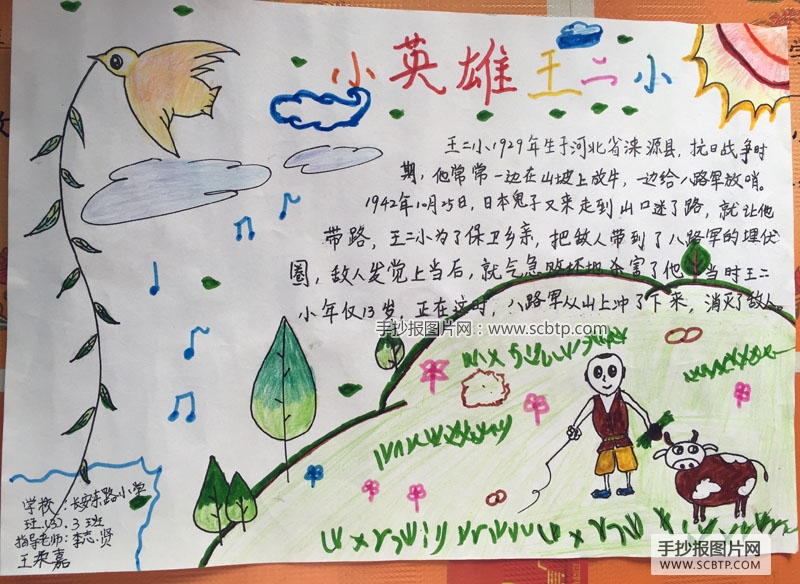 小英雄王二小
王二小1929年生于河北省涞源县,抗日战争时
期,他常常一边在山坡上放牛,一边给八路军放哨。
1942年10月25日,日本鬼子又来走到山口迷了路,就让他
带路,王二小为了保卫乡亲,把敌人带到了八路军的埋伏
圈,敌人发觉上当后,就气急败坏地杀害了他,当时王二
小年仅13岁,正在这时,八路军从山上冲了下来,消灭了敌人
手抄报图片网:www.scbtp.com
学校:长安东路小学
班(3).3班
指导老师:李志贤
王荣嘉
手抄报图片网
WWW.SCBTP.COM